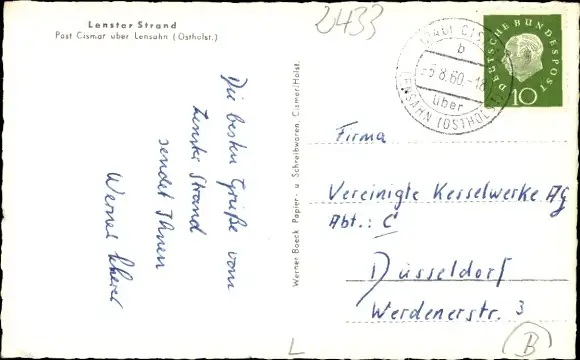 Lenster Strand
Post Cismar über Lensahn (Ostholst.)
2433
Die besten Grüße vom
Lenster Strand
sendet Ihnen
Werner
Werner Boeck Papier- u. Schreibwaren, Cismar/Holst.
CISMAR
b
-5.8.60.-18
über
LENSAHN (OSTHOLST)
DEUTSCHE BUNDESPOST
10
Firma
Vereinigte Kesselwerke AG
Abt.: C
Düsseldorf
Werdenerstr. 3
L
B